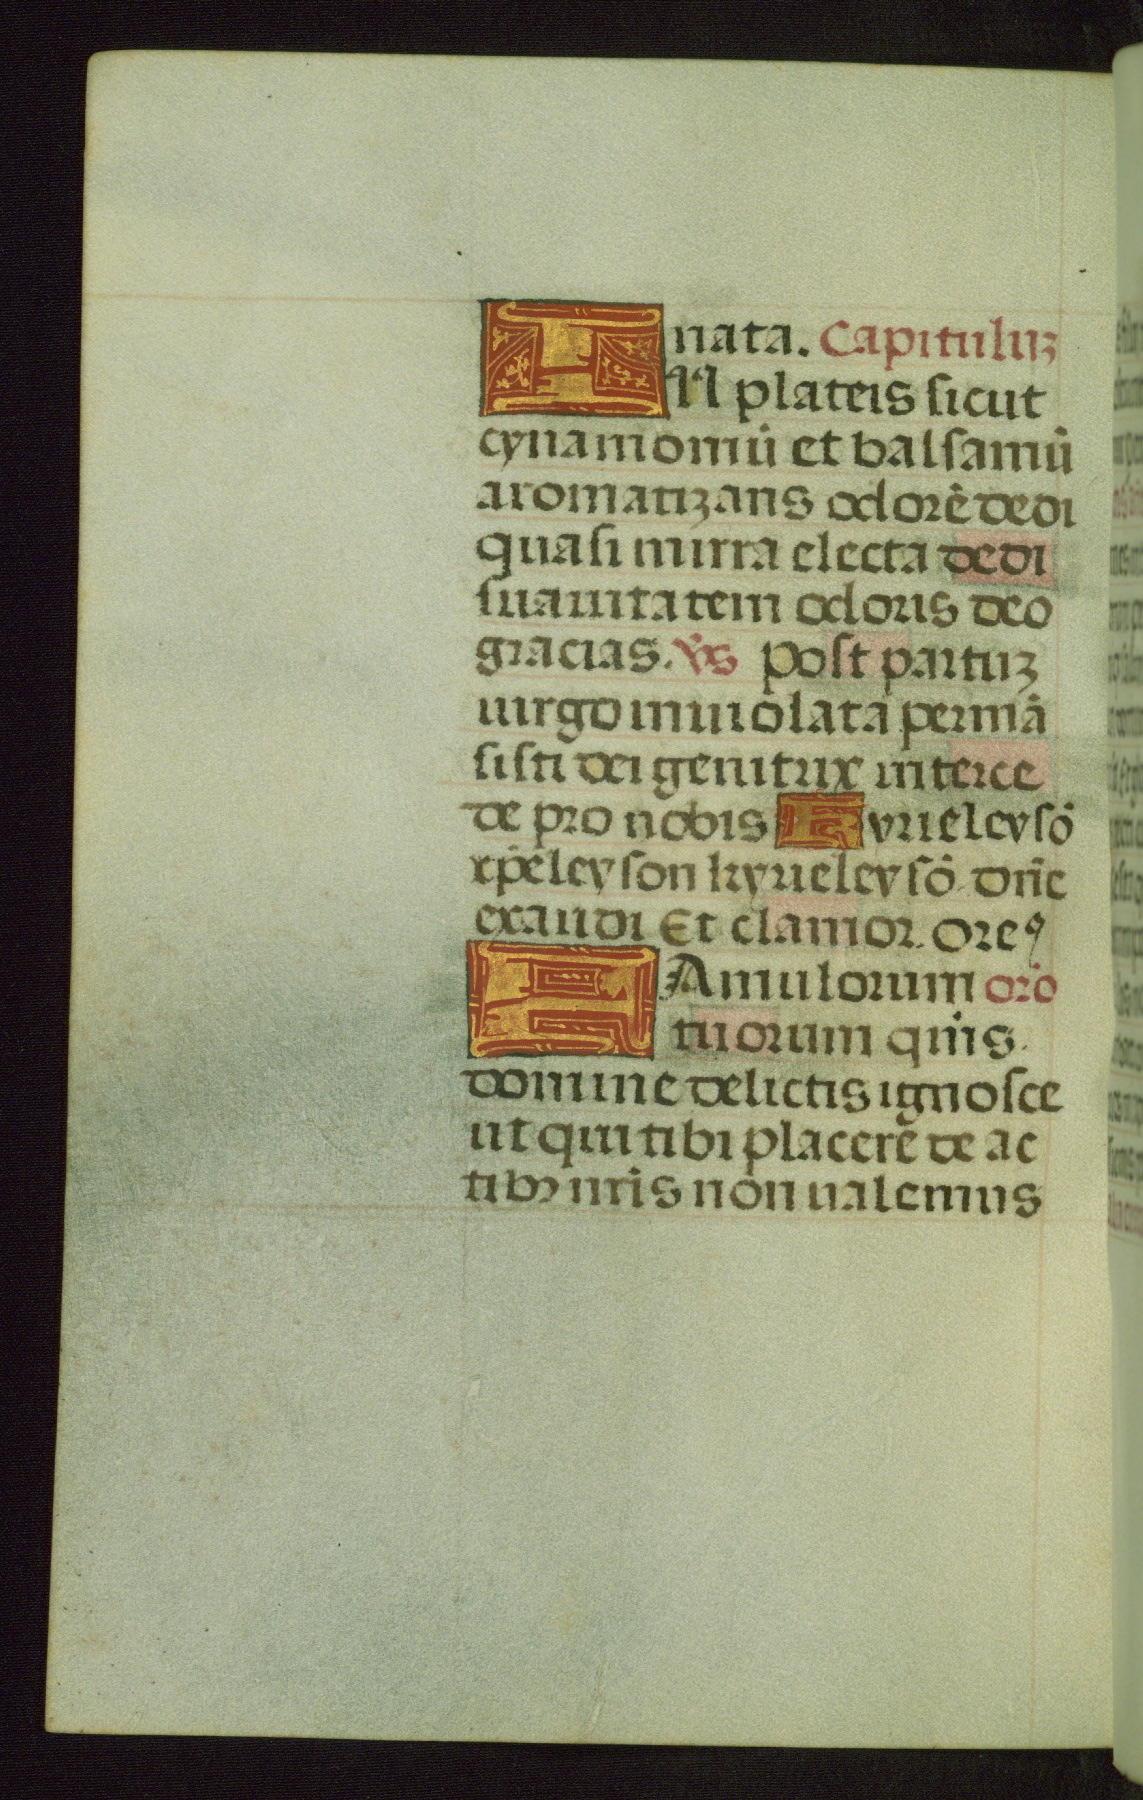 nata. Capituluʒ
IN plateis sicut
cynamomū et balsamū
aromatizans odorē dedi
quasi mirra electa dedi
suauitatem odoris deo
gracias. v̄s post partuʒ
uirgo inuiolata permā
sisti dei genitrix interce
de pro nobis Kyrieleysō
xp̄eleyson kyrieleysō dn̄e
exaudi Et clamor. oreꝰ
FAmulorum oro
tuorum qm̄s.
domine delictis ignosce
ut qui tibi placerē de ac
tibꝫ nr̄is non ualemus